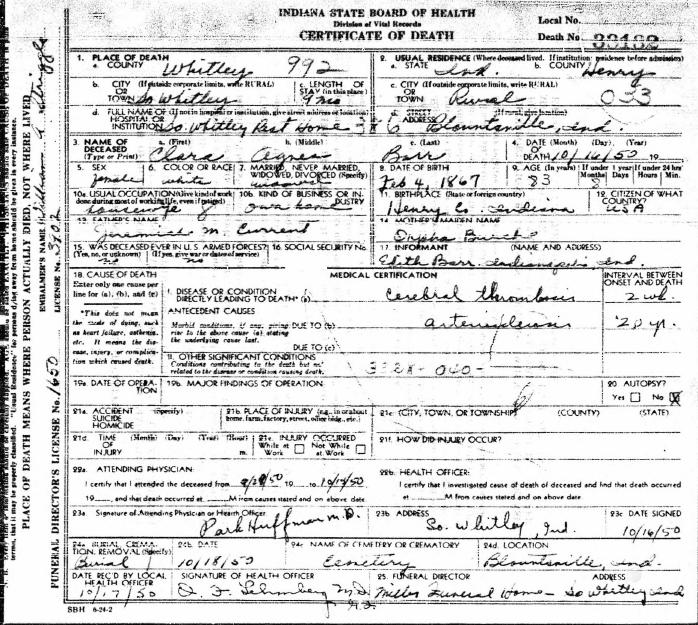 INDIANA STATE BOARD OF HEALTH
Division of Vital Records
CERTIFICATE OF DEATH
Local No.
Death No. 33182
1. PLACE OF DEATH
a. COUNTY Whitley 992
2. USUAL RESIDENCE (Where deceased lived. If institution: residence before admission)
a. STATE Ind. b. COUNTY Henry
b. CITY (If outside corporate limits, write RURAL) OR TOWN So Whitley
c. LENGTH OF STAY (in this place) 9 mo
c. CITY (If outside corporate limits, write RURAL) OR TOWN Rural 033
d. FULL NAME OF (If not in hospital or institution, give street address or location) HOSPITAL OR INSTITUTION So. Whitley Rest Home
d. STREET ADDRESS (If rural, give location) Blountsville, Ind.
3. NAME OF DECEASED (Type or Print)
a. (First) Clara b. (Middle) Agnes c. (Last) Barr
4. DATE OF DEATH (Month) (Day) (Year) 10/16/50 19
5. SEX female
6. COLOR OR RACE white
7. MARRIED, NEVER MARRIED, WIDOWED, DIVORCED (Specify) widowed
8. DATE OF BIRTH Feb 4, 1867
9. AGE (In years) 83 If under 1 year Months 8 Days If under 24 hrs Hours Min.
10a. USUAL OCCUPATION (Give kind of work done during most of working life, even if retired) housewife
10b. KIND OF BUSINESS OR INDUSTRY own home
11. BIRTHPLACE (State or foreign country) Henry Co. Indiana
12. CITIZEN OF WHAT COUNTRY? USA
13. FATHER'S NAME Jeremiah M. Current
14. MOTHER'S MAIDEN NAME Burch
15. WAS DECEASED EVER IN U. S. ARMED FORCES? (Yes, no, or unknown) (If yes, give war or dates of service) no no
16. SOCIAL SECURITY No.
17. INFORMANT (NAME AND ADDRESS) Edith Barr, Indianapolis, Ind.
18. CAUSE OF DEATH
Enter only one cause per line for (a), (b), and (c)
*This does not mean the mode of dying, such as heart failure, asthenia, etc. It means the disease, injury, or complication which caused death.
MEDICAL CERTIFICATION
INTERVAL BETWEEN ONSET AND DEATH
I. DISEASE OR CONDITION DIRECTLY LEADING TO DEATH* (a) cerebral thrombosis 2 wk.
ANTECEDENT CAUSES
Morbid conditions, if any, giving rise to the above cause (a) stating the underlying cause last.
DUE TO (b) arteriosclerosis 20 yr.
DUE TO (c)
II. OTHER SIGNIFICANT CONDITIONS
Conditions contributing to the death but not related to the disease or condition causing death.
332X-040-
19a. DATE OF OPERATION
19b. MAJOR FINDINGS OF OPERATION
20. AUTOPSY?
Yes No X
21a. ACCIDENT (Specify) SUICIDE HOMICIDE
21b. PLACE OF INJURY (e.g., in or about home, farm, factory, street, office bldg., etc.)
21c. (CITY, TOWN, OR TOWNSHIP) (COUNTY) (STATE)
21d. TIME OF INJURY (Month) (Day) (Year) (Hour) m.
21e. INJURY OCCURRED While at Work Not While at Work
21f. HOW DID INJURY OCCUR?
22a. ATTENDING PHYSICIAN:
I certify that I attended the deceased from 9/29/50 19 to 10/14/50
19 , and that death occurred at M from causes stated and on above date
22b. HEALTH OFFICER:
I certify that I investigated cause of death of deceased and find that death occurred
at M from causes stated and on above date
23a. Signature of Attending Physician or Health Officer Park Huffman M.D.
23b. ADDRESS So. Whitley, Ind.
23c. DATE SIGNED 10/16/50
24a. BURIAL, CREMATION, REMOVAL (Specify) Burial
24b. DATE 10/18/50
24c. NAME OF CEMETERY OR CREMATORY Cemetery
24d. LOCATION Blountsville, Ind.
DATE REC'D BY LOCAL HEALTH OFFICER 10/17/50
SIGNATURE OF HEALTH OFFICER
25. FUNERAL DIRECTOR ADDRESS Miller Funeral Home - So Whitley Ind
SBH 6-24-2
PLACE OF DEATH MEANS WHERE PERSON ACTUALLY DIED, NOT WHERE LIVED
EMBALMER'S NAME
LICENSE No. 3702
FUNERAL DIRECTOR'S LICENSE No. 1650